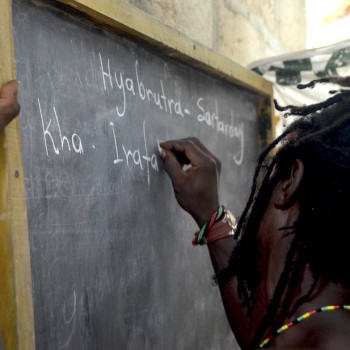 Hyabrutra - Sartarouy
Kha. Irafa